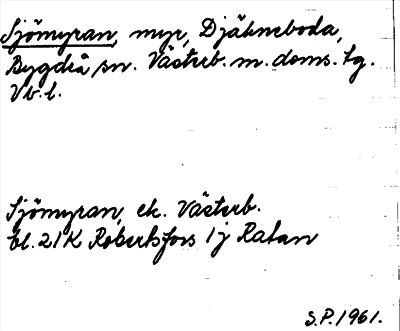 Sjömyran, myr, Djäkneboda,
Bygdeå sn. Västerb. m. doms. tg.
Vb. l.
Sjömyran, ek. Västerb.
bl. 21K Robertsfors 1j Ratan
S.P. 1961.